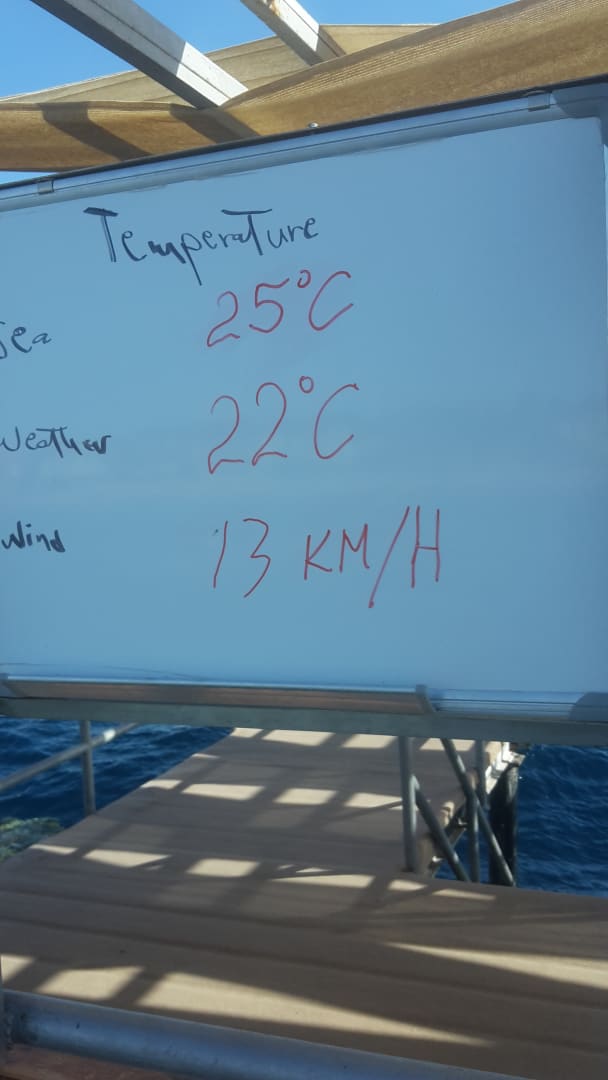 Temperature
Sea 25°C
Weather 22°C
Wind 13 KM/H